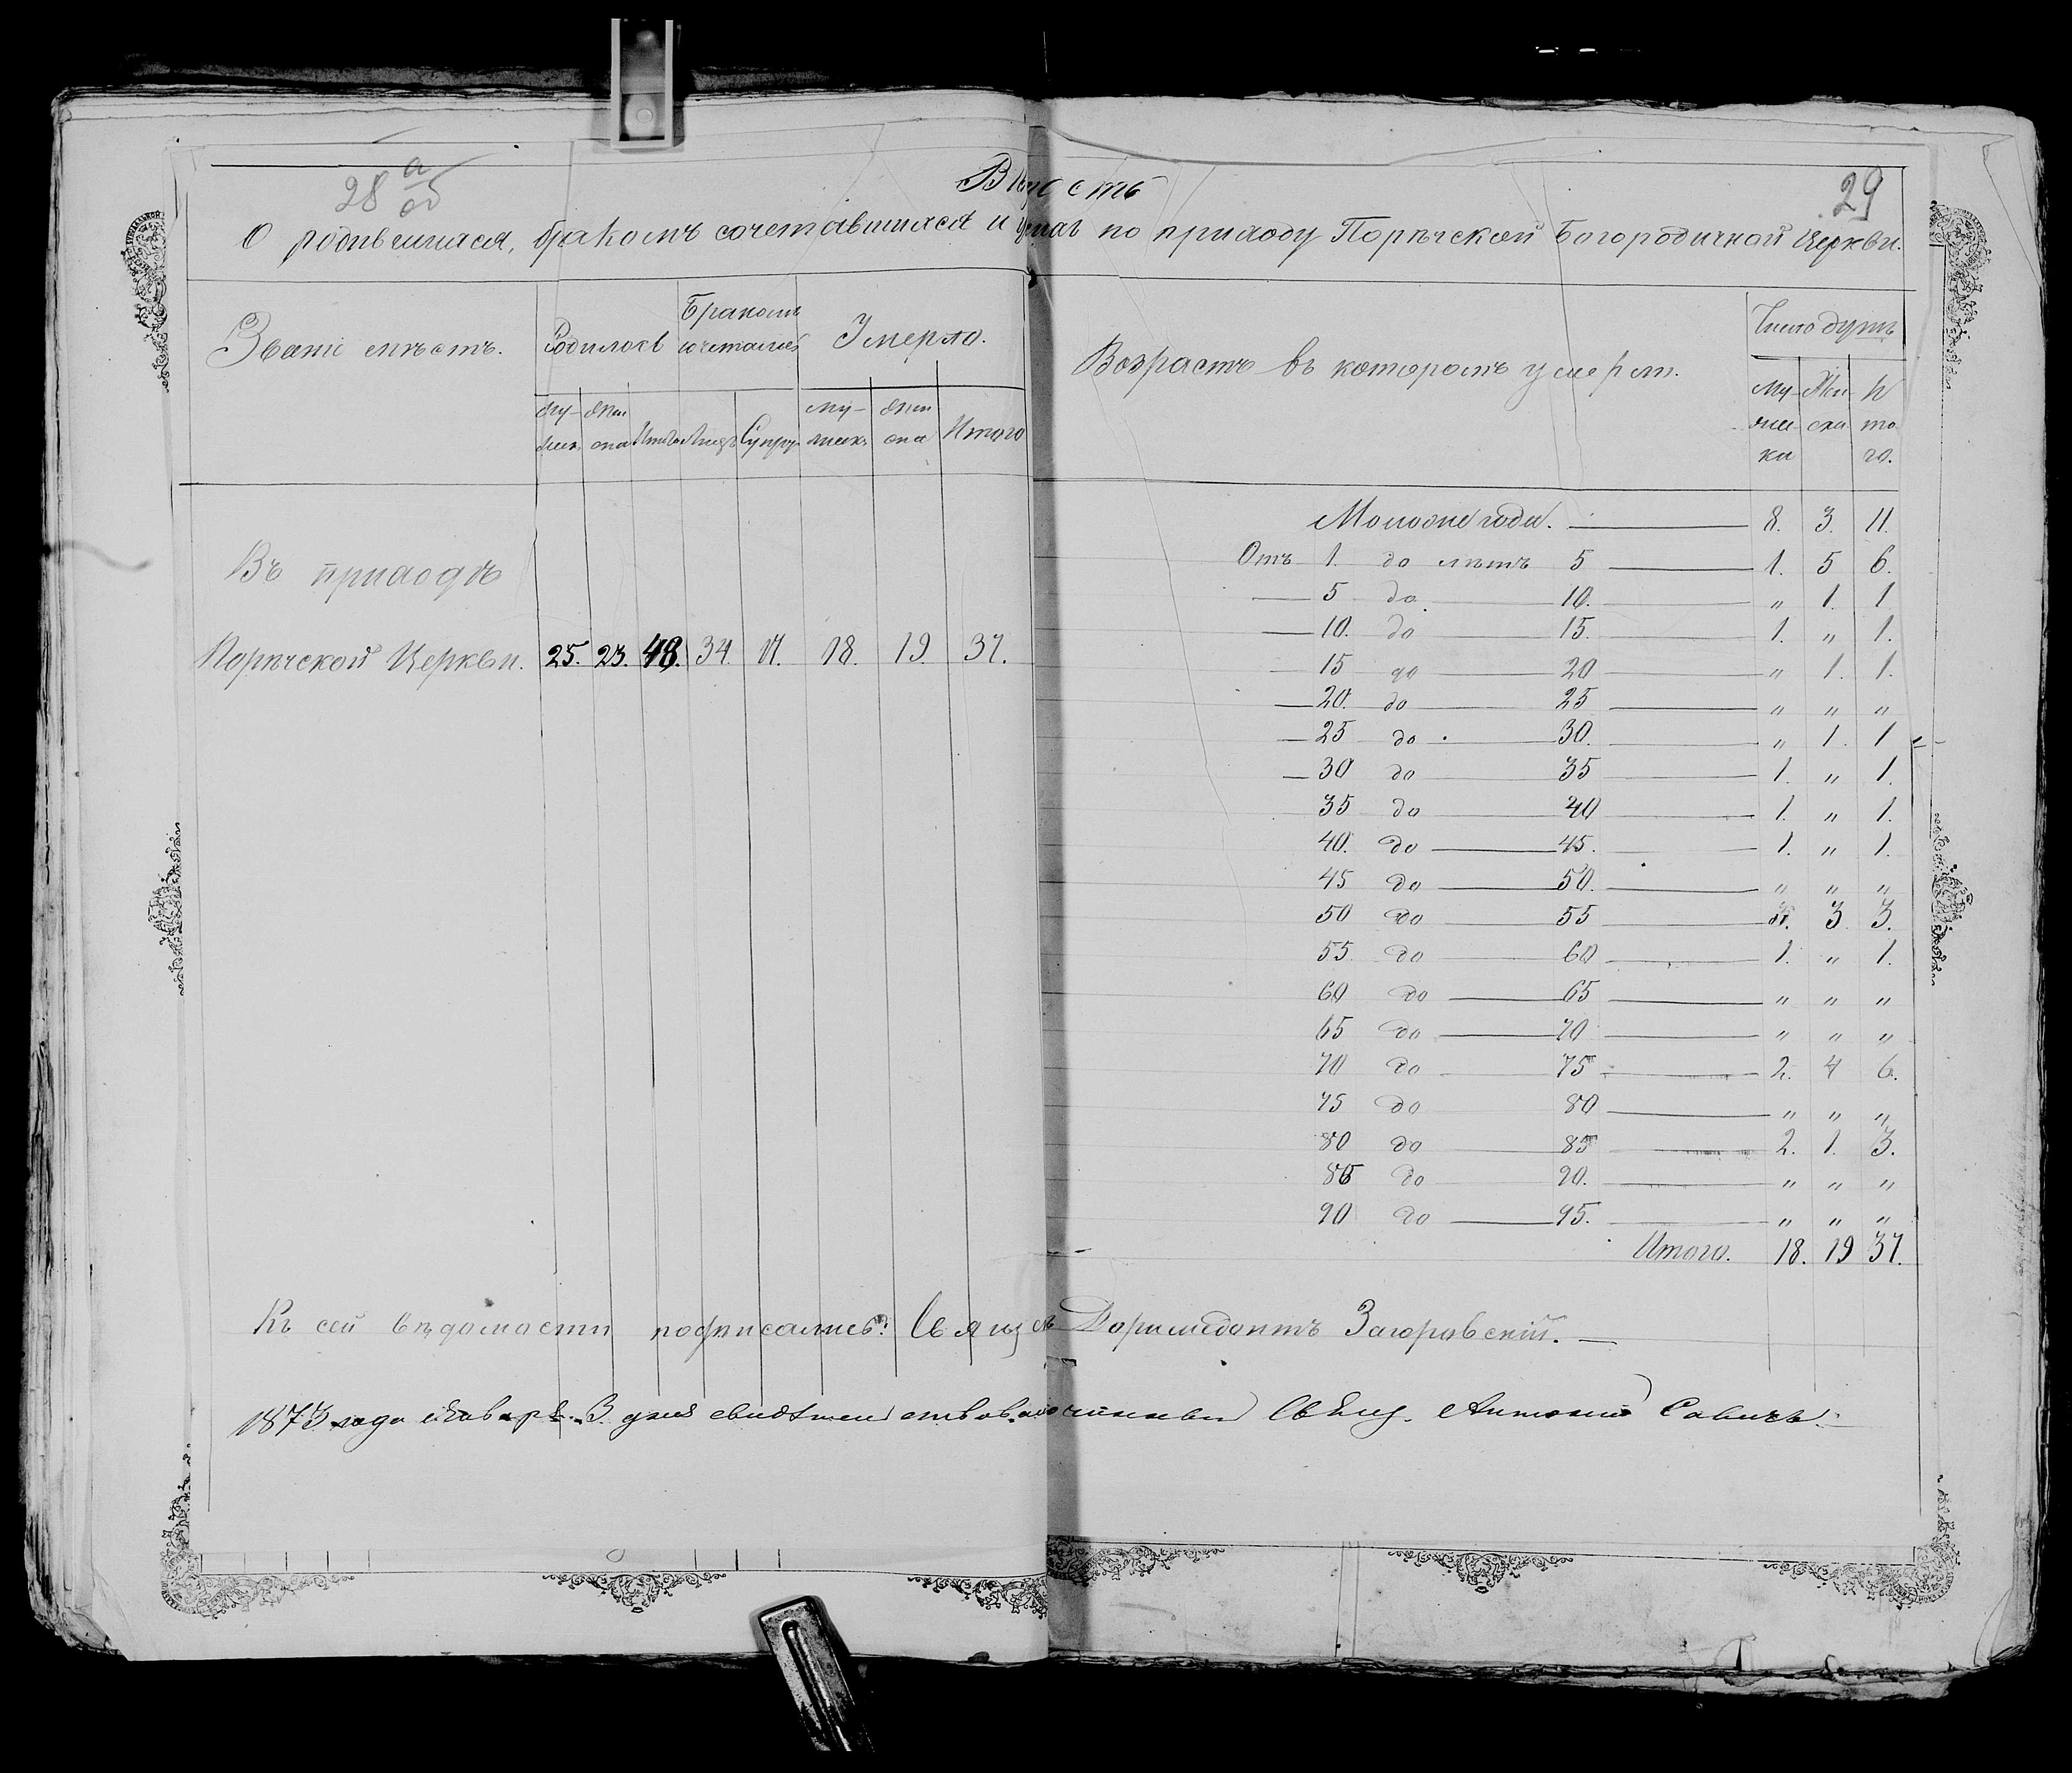 28 а/об
29
Вѣдость
О родившихся, бракомъ сочетавшихся и умер. по приходу Порѣчской Богородичной Церкви.
Званіе мѣстъ. Родилось Бракомъ сочетались Умерло.
Му-жск. Жен ска Итого Лицъ Супру. му-жеск. жен ска Итого
Въ приходѣ
Порѣчской Церкви. 25. 23. 48. 34. 17. 18. 19. 37.
Возрастъ въ которомъ умерли. Число душъ
Му-жес-ка Жен-ска И то го.
Моложе года. 8. 3. 11.
Отъ 1. до лѣтъ 5 1. 5 6.
5 до 10. " 1. 1
10. до 15. 1. " 1.
15 до 20 " 1. 1.
20. до 25 " " "
25 до 30. " 1. 1
30 до 35 1. " 1.
35 до 40 1. " 1.
40. до 45. 1. " 1.
45 до 50. " " "
50 до 55 3 3.
55. до 60 1. " 1.
60 до 65 " " "
65 до 70 " " "
70 до 75 2. 4 6.
75 до 80 " " "
80 до 85 2. 1. 3.
85 до 90. " " "
90 до 95. " " "
Итого. 18. 19 37.
Къ сей вѣдомости подписались: Священ. Доримедонтъ Загоровскій.
1873 года Января 3 дня свидѣтельствов. благочинный Свящ. Антоній Савичъ.